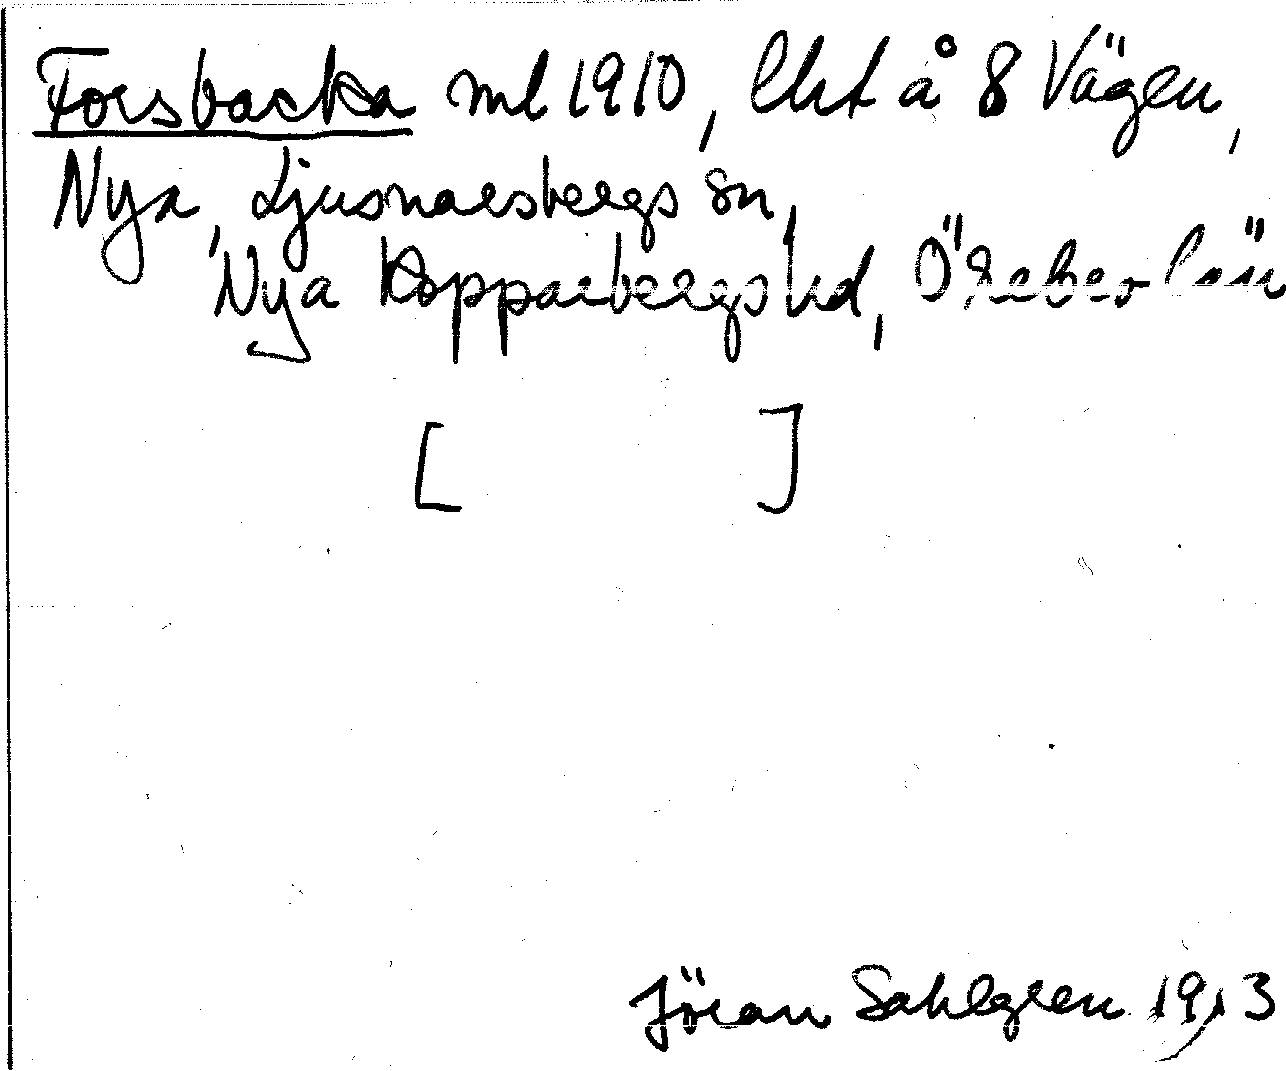 Forsbacka ml 1910, Ekt å 8 Vägen,
Nya, Ljusnarsbergs sn,
Nya Kopparbergs hd, Örebro län
[ ]
Jöran Sahlgren 1913